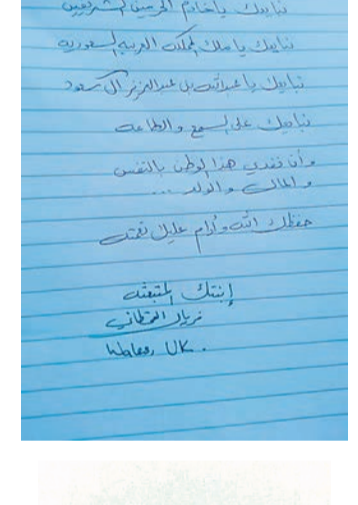 نبايعك ياخادم الحرمين الشريفين
نبايعك يا ملك المملكه العربيه السعوديه
نبايعك يا عبدالله بن عبدالعزيز آل سعود
نبايعك على السمع والطاعه
وأن نفدي هذا الوطن بالنفس
و المال والولد ...
حفظك الله وأدام عليك نعمته
إبنتك المبتعثه
فريال القحطاني
UK .